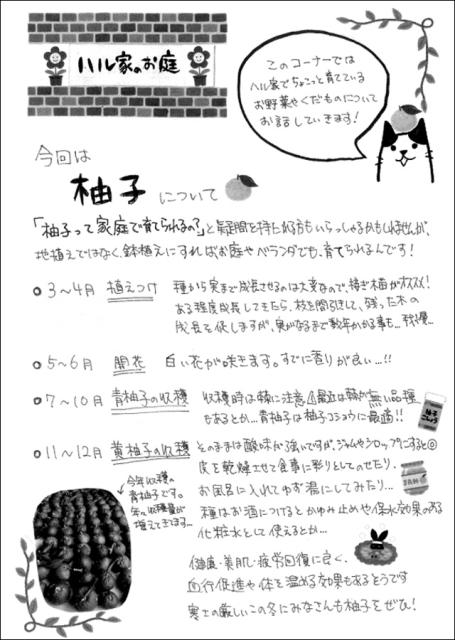 ハル家のお庭
このコーナーでは
ハル家でちょこっと育てている
お野菜やくだものについて
お話していきます!
今回は
柚子について
「柚子って家庭で育てられるの?」と疑問を持たれる方もいらっしゃるかもしれませんが、
地植えではなく、鉢植えにすればお庭やベランダでも、育てられるんです!
3〜4月 植えつけ 種から実まで成長させるのは大変なので、接ぎ木苗がオススメ!
ある程度成長してきたら、枝を間引きして、残った木の
成長を促しますが、実がなるまで数年かかる事も…我慢…
5〜6月 開花 白い花が咲きます。すでに香りが良い…!!
7〜10月 青柚子の収穫 収穫時は棘に注意⚠最近は棘が無い品種
もあるとか…青柚子は柚子コショウに最適!!
柚子
こしょう
11〜12月 黄柚子の収穫 そのままは酸味が強いですが、ジャムやシロップにすると◎
皮を乾燥させて食事に彩りとしてのせたり、
お風呂に入れてゆず湯にしてみたり…
JAM
種はお酒につけるとかゆみ止めや保水効果のある
化粧水として使えるとか…
今年収穫の
青柚子です。
年々収穫量が
増えてきてます…
健康・美肌・疲労回復に良く、
血行促進や体を温める効果もあるそうです
寒さの厳しいこの冬にみなさんも柚子をぜひ!